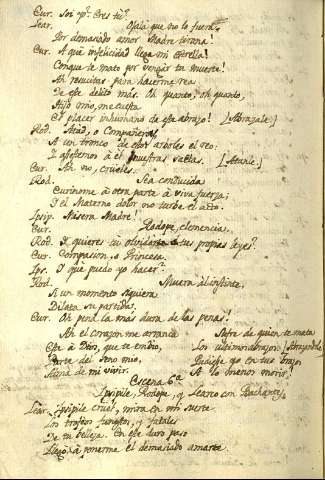 Eur. Soi yo. Eres tu?
Lear. Ojala que no lo fuera,
Por demasiado amor Madre tirana!
Eur. A què infelicidad llega mi estrella!
Conque te mato por vengar tu muerte!
Ah resucitas para hacerme rea
De este delito más. Oh quanto, oh quanto,
Hijo mio, me cuesta
El placer inhumano de este abrazo! [Abrazale.]
Rod. Atad, o Compañeras,
A un tronco de esos arboles el reo:
I asestense à el nuestras saetas. [Atanle.]
Eur. Ah no, crueles.
Rod. Sea conducida
Eurinome à otra parte à viva fuerza;
I el Materno dolor no turbe el acto.
Ipsip. Misera Madre!
Eur. Rodope, clemencia.
Rod. I quieres tu olvidar tus propias leyes?
Eur. Compasion, o Princesa.
Ips. I que puedo yo hacer?
Rod. Muera al instante,
Ni un momento siquiera
Dilata su partida.
Eur. Oh pena la más dura de las penas!
Ah el corazon me arranca
Este à Dios, que te endio,
Parte del seno mio,
Alma de mi vivir.
Sufre de quien te mata
Los ultimos abrazos: [Abrazandole]
Pudiese yo en tus brazos
A lo menos morir!
Escena 6a.
Ipsipile, Rodope, y Learco con Bachantes
Lear. Ipsipile cruel, mira en mi suerte
Los trofeos funestos, y fatales
De tu belleza. En este duro paso
Llegò à ponerme el demasiado amarte.